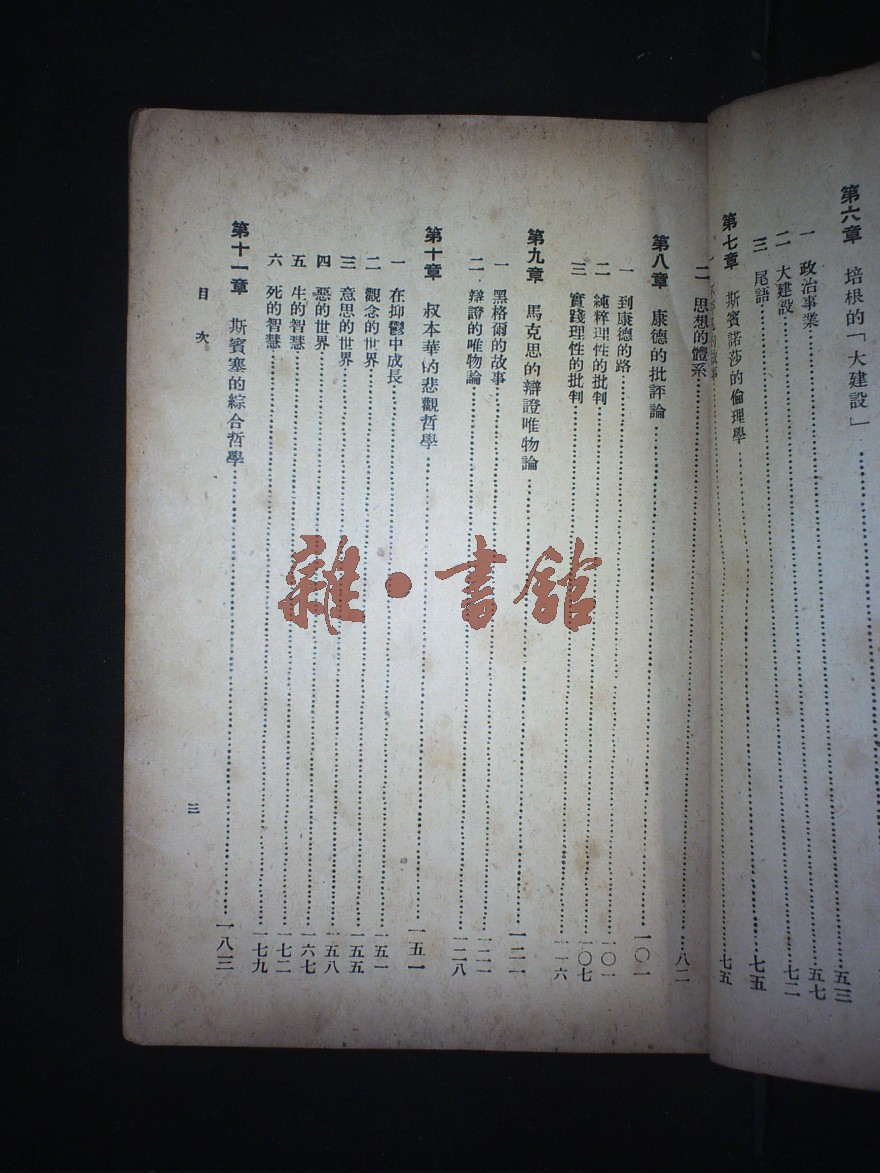 第六章 培根的「大建設」……五三
一 政治事業……五七
二 大建設……七二
三 尾語……七五
第七章 斯賓諾莎的倫理學……七五
二 思想的體系……八二
第八章 康德的批評論……一〇一
一 到康德的路……一〇一
二 純粹理性的批判……一〇七
三 實踐理性的批判……一一六
第九章 馬克思的辯證唯物論……一二一
一 黑格爾的故事……一二一
二 辯證的唯物論……一二八
第十章 叔本華的悲觀哲學……一五一
一 在抑鬱中成長……一五一
二 觀念的世界……一五五
三 意思的世界……一五八
四 惡的世界……一六七
五 生的智慧……一七二
六 死的智慧……一七九
第十一章 斯賓塞的綜合哲學……一八三
目次
三
雜·書館